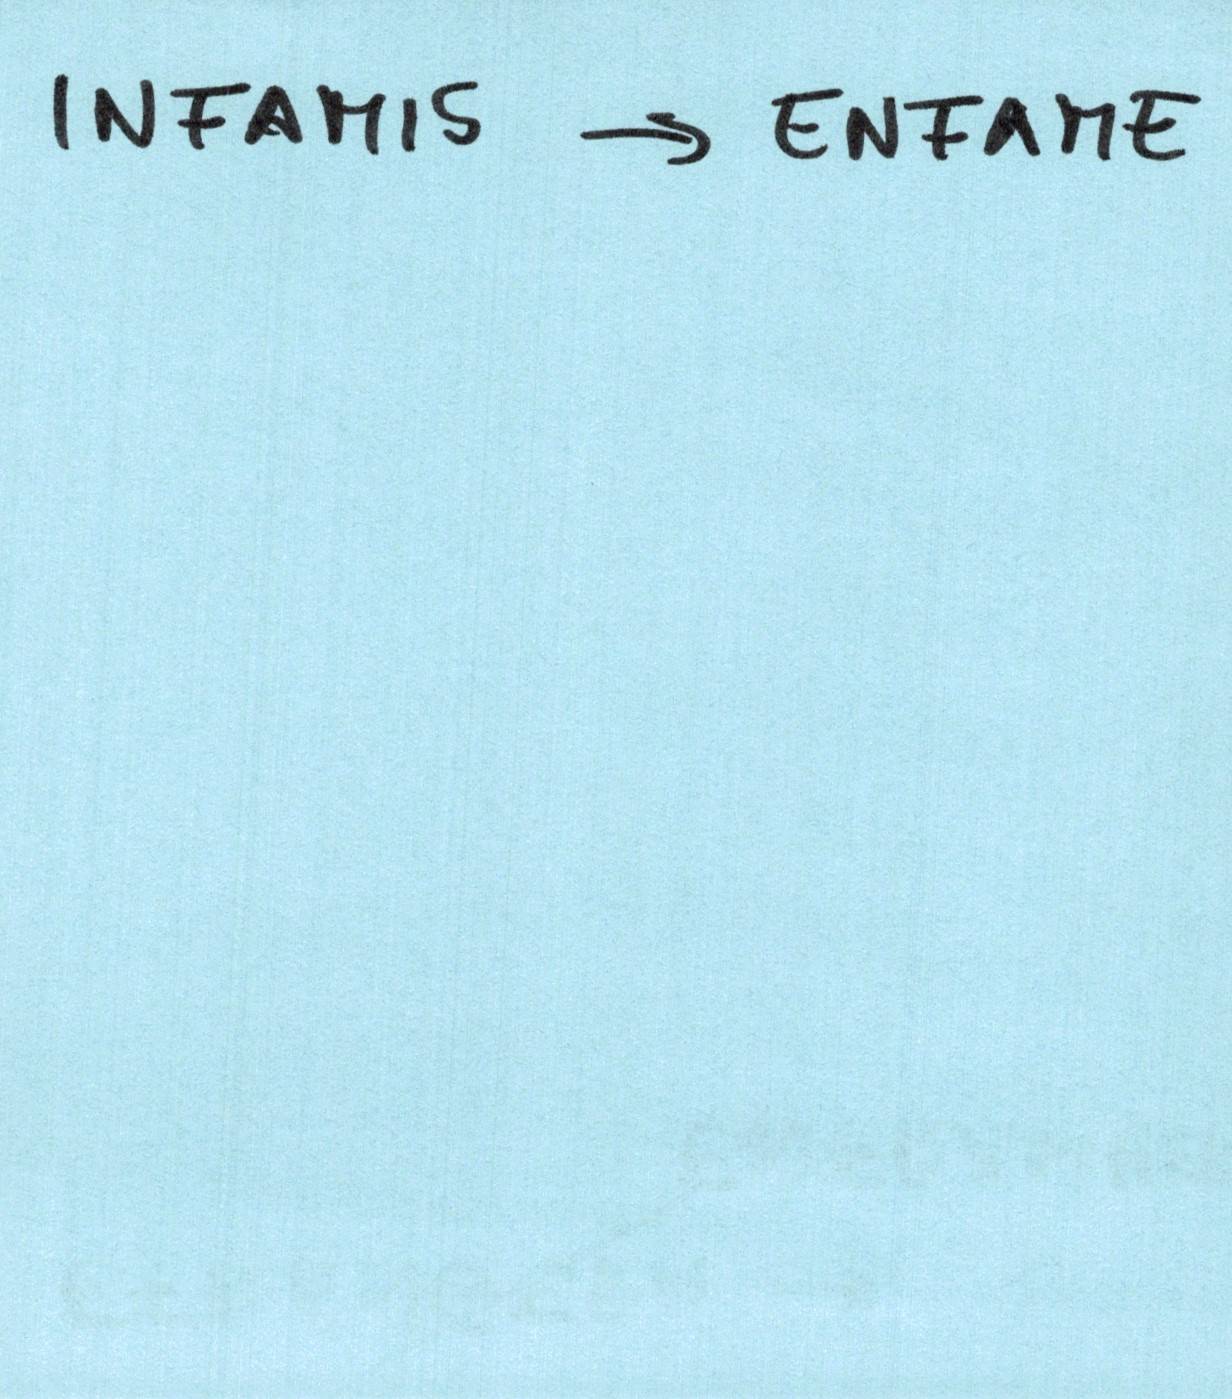 INFAMIS → ENFAME